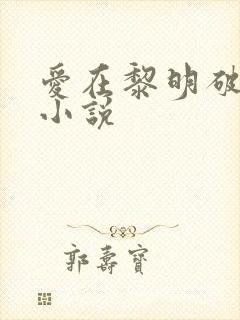 愛在黎明破
小説
郭壽寶